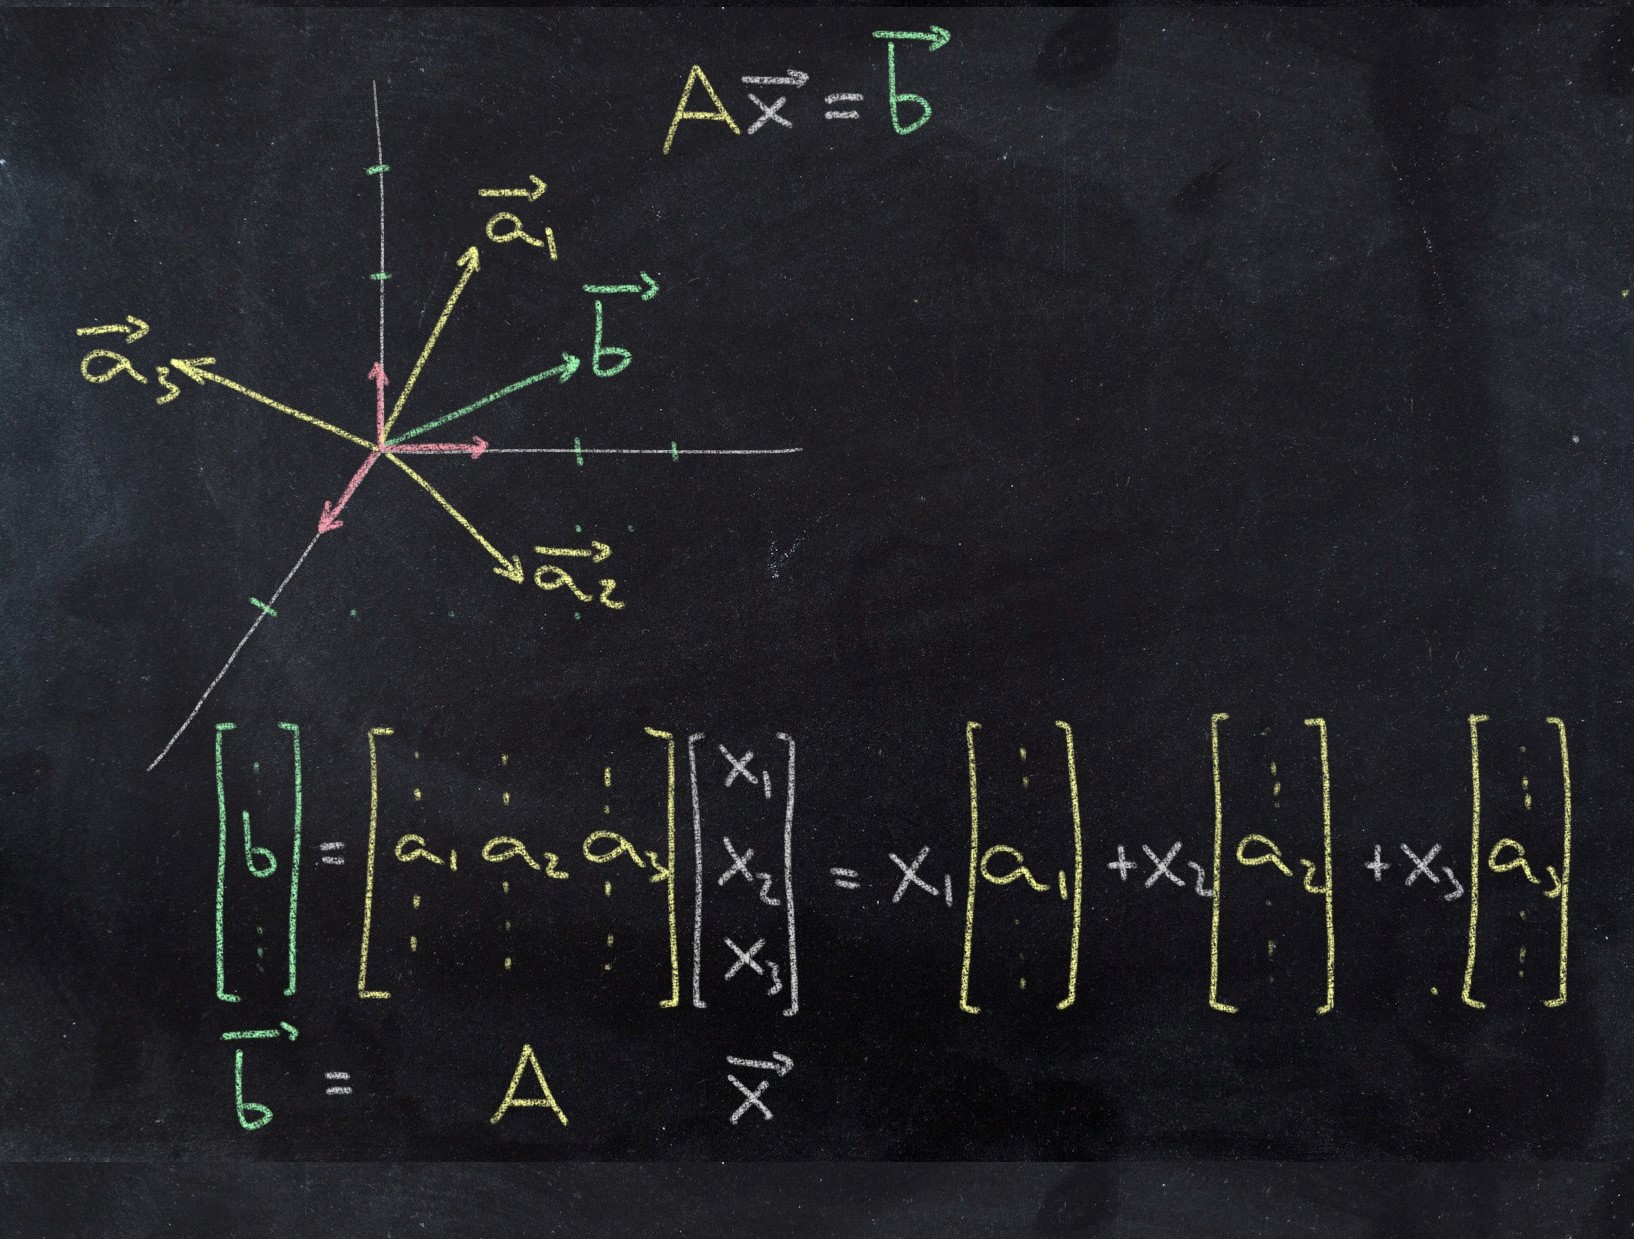 A x⃗ = b⃗
a⃗₁
b⃗
a⃗₃
a⃗₂
[b] = [a₁ a₂ a₃] [x₁ x₂ x₃] = x₁ [a₁] + x₂ [a₂] + x₃ [a₃]
b⃗ = A x⃗